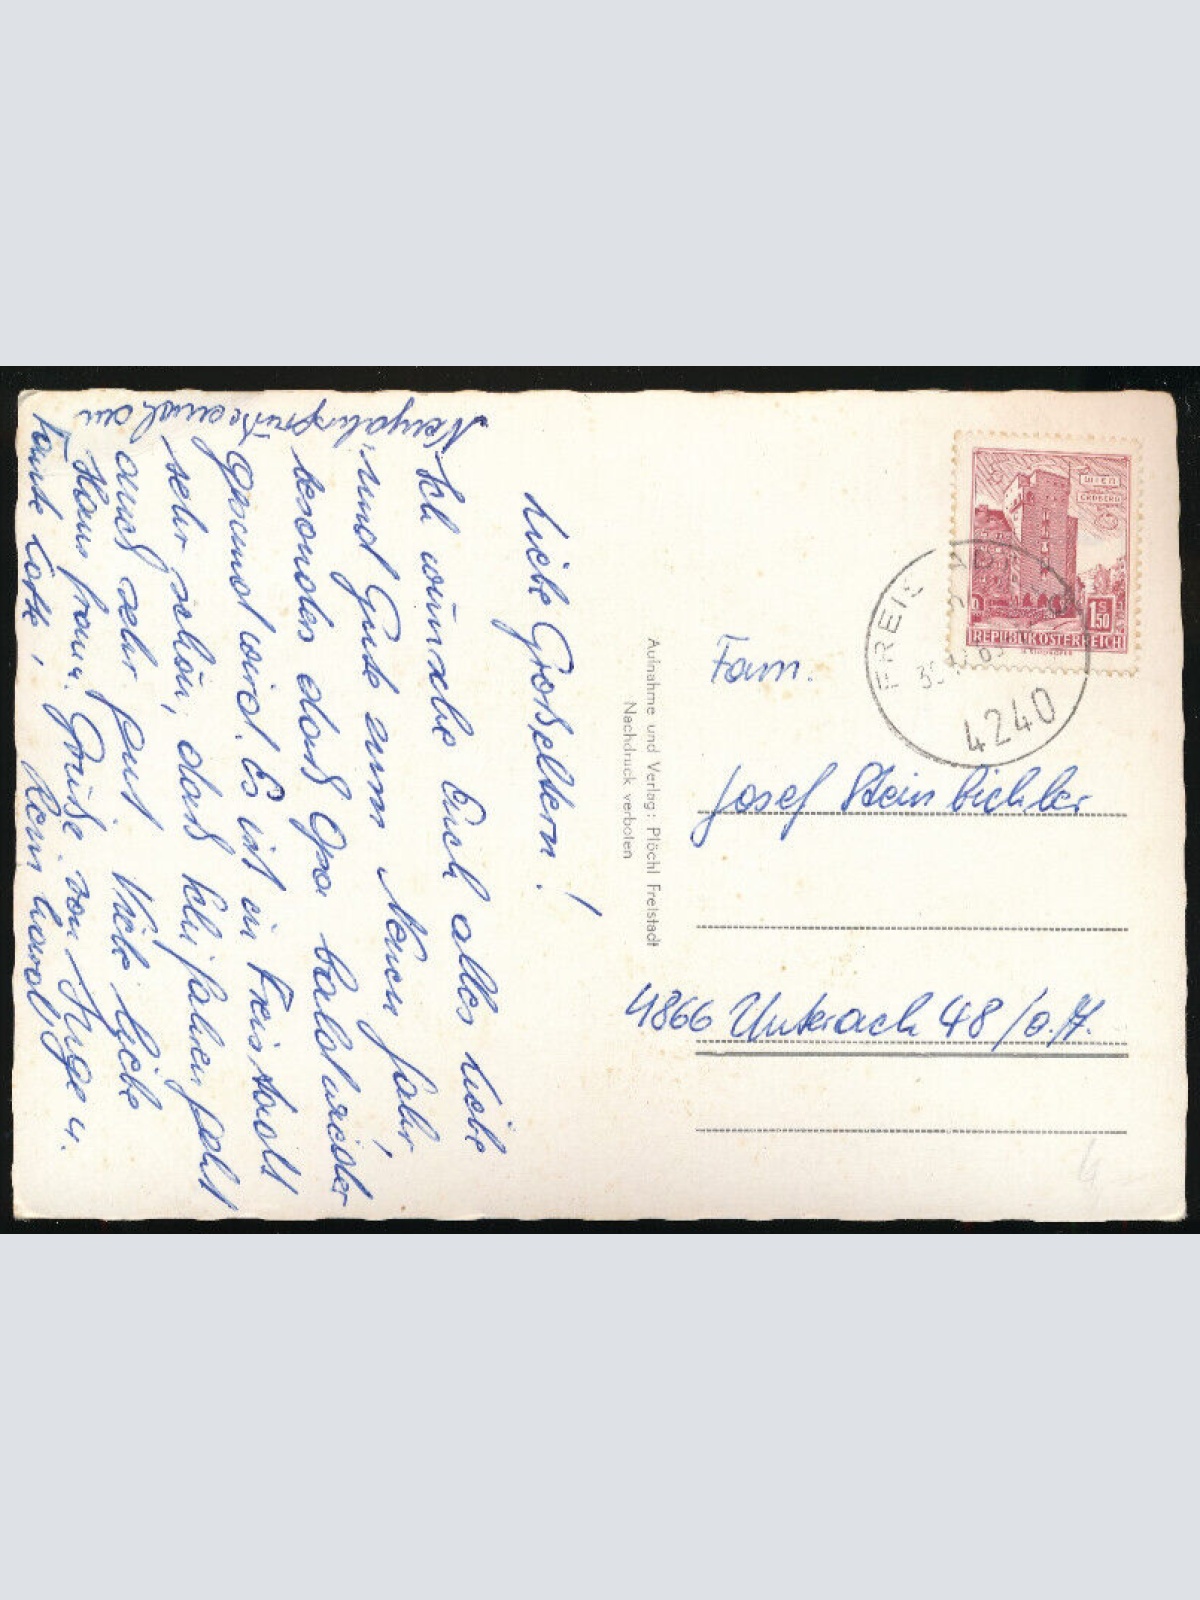 Liebe Großeltern!
Ich wünsche Euch alles liebe
und Gute zum Neuen Jahr,
besonders daß Opa bald wieder
gesund wird. Es ist in Freistadt
sehr schön, daß Schifahren geht
auch sehr gut. Viele liebe
Neujahrsgrüße auch an
Grüße von Inge u.
Tante Lotte, Reinhard
Aufnahme und Verlag: Plöchl Freistadt
Nachdruck verboten
WIEN
ERDBERG
S
1.50
REPUBLIK ÖSTERREICH
FREISTADT
4240
Fam.
Josef Steinbichler
4866 Unterach 48/a.A.